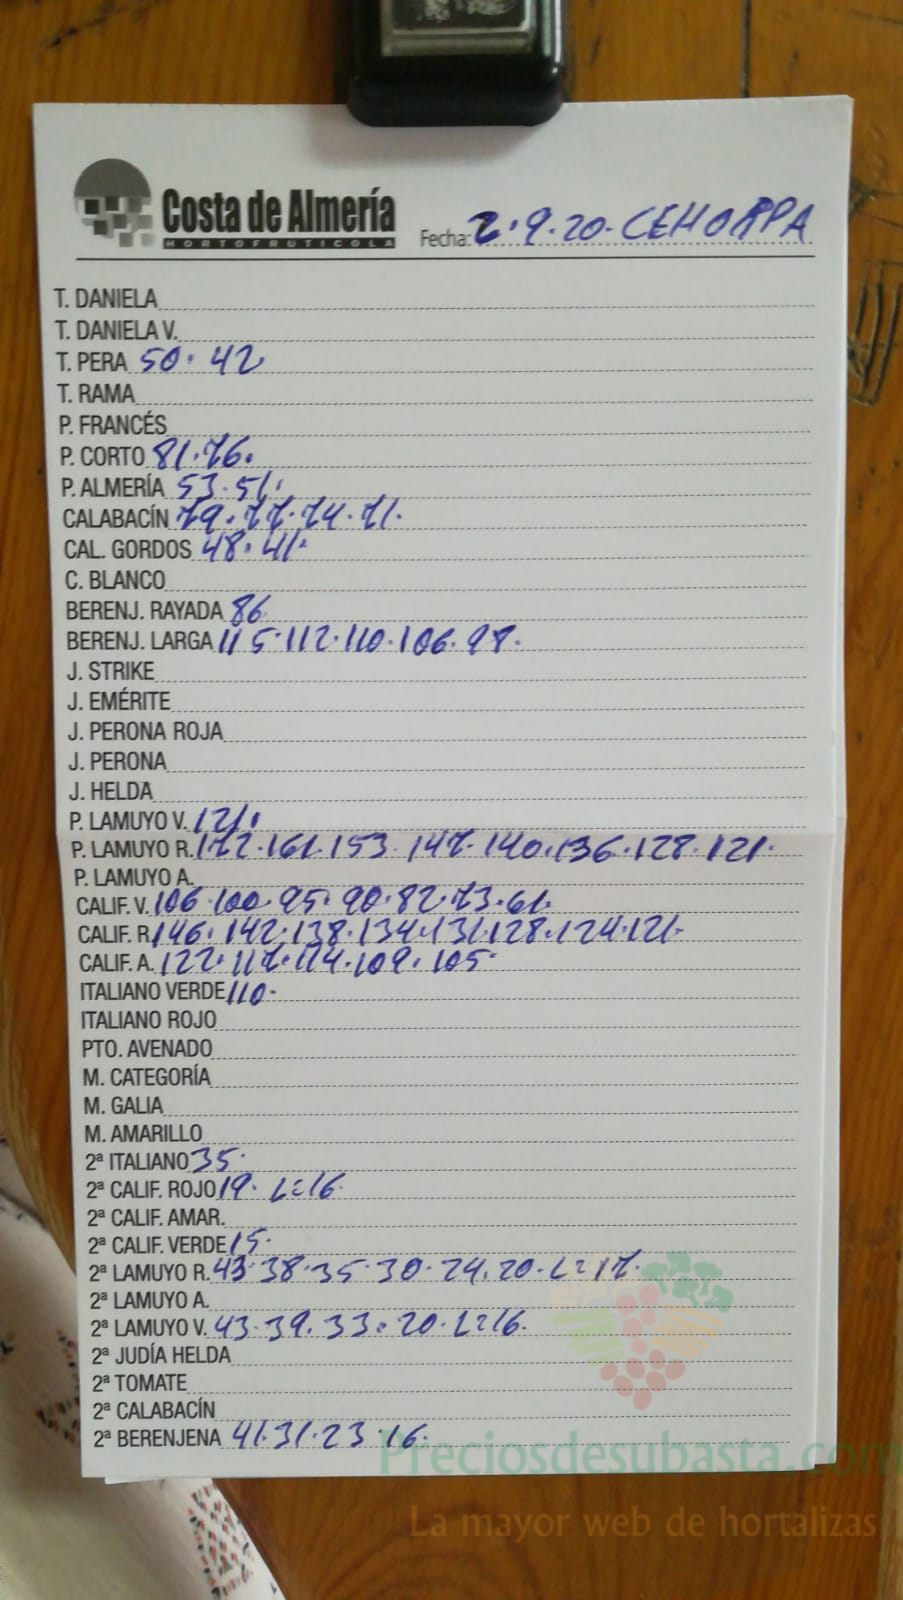 Costa de Almería
HORTOFRUTICOLA
Fecha: 2.9.20. CEHORPA
T. DANIELA
T. DANIELA V.
T. PERA 50. 42
T. RAMA
P. FRANCÉS
P. CORTO 81.76.
P. ALMERÍA 53.51.
CALABACÍN 79.77.74.71.
CAL. GORDOS 48.41.
C. BLANCO
BERENJ. RAYADA 86
BERENJ. LARGA 115.112.110.106.97.
J. STRIKE
J. EMÉRITE
J. PERONA ROJA
J. PERONA
J. HELDA
P. LAMUYO V. 121.
P. LAMUYO R. 172.161.153.147.140.136.128.121.
P. LAMUYO A.
CALIF. V. 106.100.95.90.82.73.61.
CALIF. R. 146.142.138.134.131.128.124.121.
CALIF. A. 122.117.114.109.105.
ITALIANO VERDE 110.
ITALIANO ROJO
PTO. AVENADO
M. CATEGORÍA
M. GALIA
M. AMARILLO
2ª ITALIANO 35.
2ª CALIF. ROJO 19. L=16.
2ª CALIF. AMAR.
2ª CALIF. VERDE 15.
2ª LAMUYO R. 43.38.35.30.24.20.L=17.
2ª LAMUYO A.
2ª LAMUYO V. 43.39.33.20.L=16.
2ª JUDÍA HELDA
2ª TOMATE
2ª CALABACÍN
2ª BERENJENA 41.31.23.16.
Preciosdesubasta.com
La mayor web de hortalizas